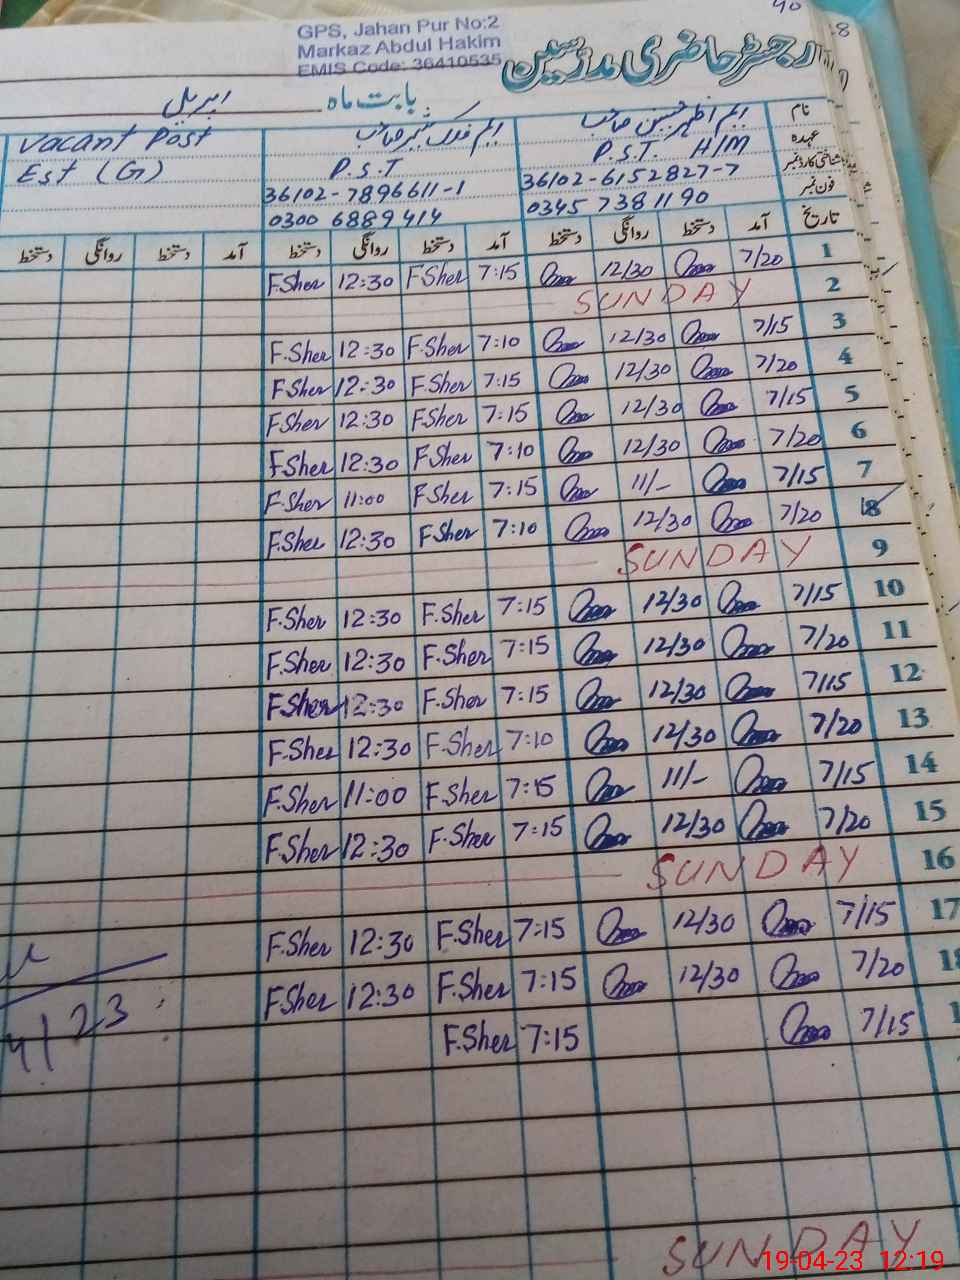 40
8
GPS, Jahan Pur No:2
Markaz Abdul Hakim
EMIS Code: 36410535
رجسٹر حاضری مدرسین
بابت ماہ اپریل
نام ایم اظہر حسین صاحب Vacant Post
عہدہ P.S.T. H/M P.S.T Est (G)
شناختی کارڈ نمبر 36102-6152827-7 36102-7896611-1
فون نمبر 0345 7381190 0300 6889414
تاریخ آمد دستخط روانگی دستخط آمد دستخط روانگی دستخط آمد دستخط روانگی دستخط
1 7/20 12/30 7:15 F.Sher 12:30 F.Sher
2 SUNDAY
3 7/15 12/30 7:10 F.Sher 12:30 F.Sher
4 7/20 12/30 7:15 F.Sher 12:30 F.Sher
5 7/15 12/30 7:15 F.Sher 12:30 F.Sher
6 7/20 12/30 7:10 F.Sher 12:30 F.Sher
7 7/15 11/- 7:15 F.Sher 11:00 F.Sher
8 7/20 12/30 7:10 F.Sher 12:30 F.Sher
9 SUNDAY
10 7/15 12/30 7:15 F.Sher 12:30 F.Sher
11 7/20 12/30 7:15 F.Sher 12:30 F.Sher
12 7/15 12/30 7:15 F.Sher 12:30 F.Sher
13 7/20 12/30 7:10 F.Sher 12:30 F.Sher
14 7/15 11/- 7:15 F.Sher 11:00 F.Sher
15 7/20 12/30 7:15 F.Sher 12:30 F.Sher
16 SUNDAY
17 7/15 12/30 7:15 F.Sher 12:30 F.Sher
18 7/20 12/30 7:15 F.Sher 12:30 F.Sher
1 7/15 7:15 F.Sher
4/23
SUNDAY
19-04-23 12:19